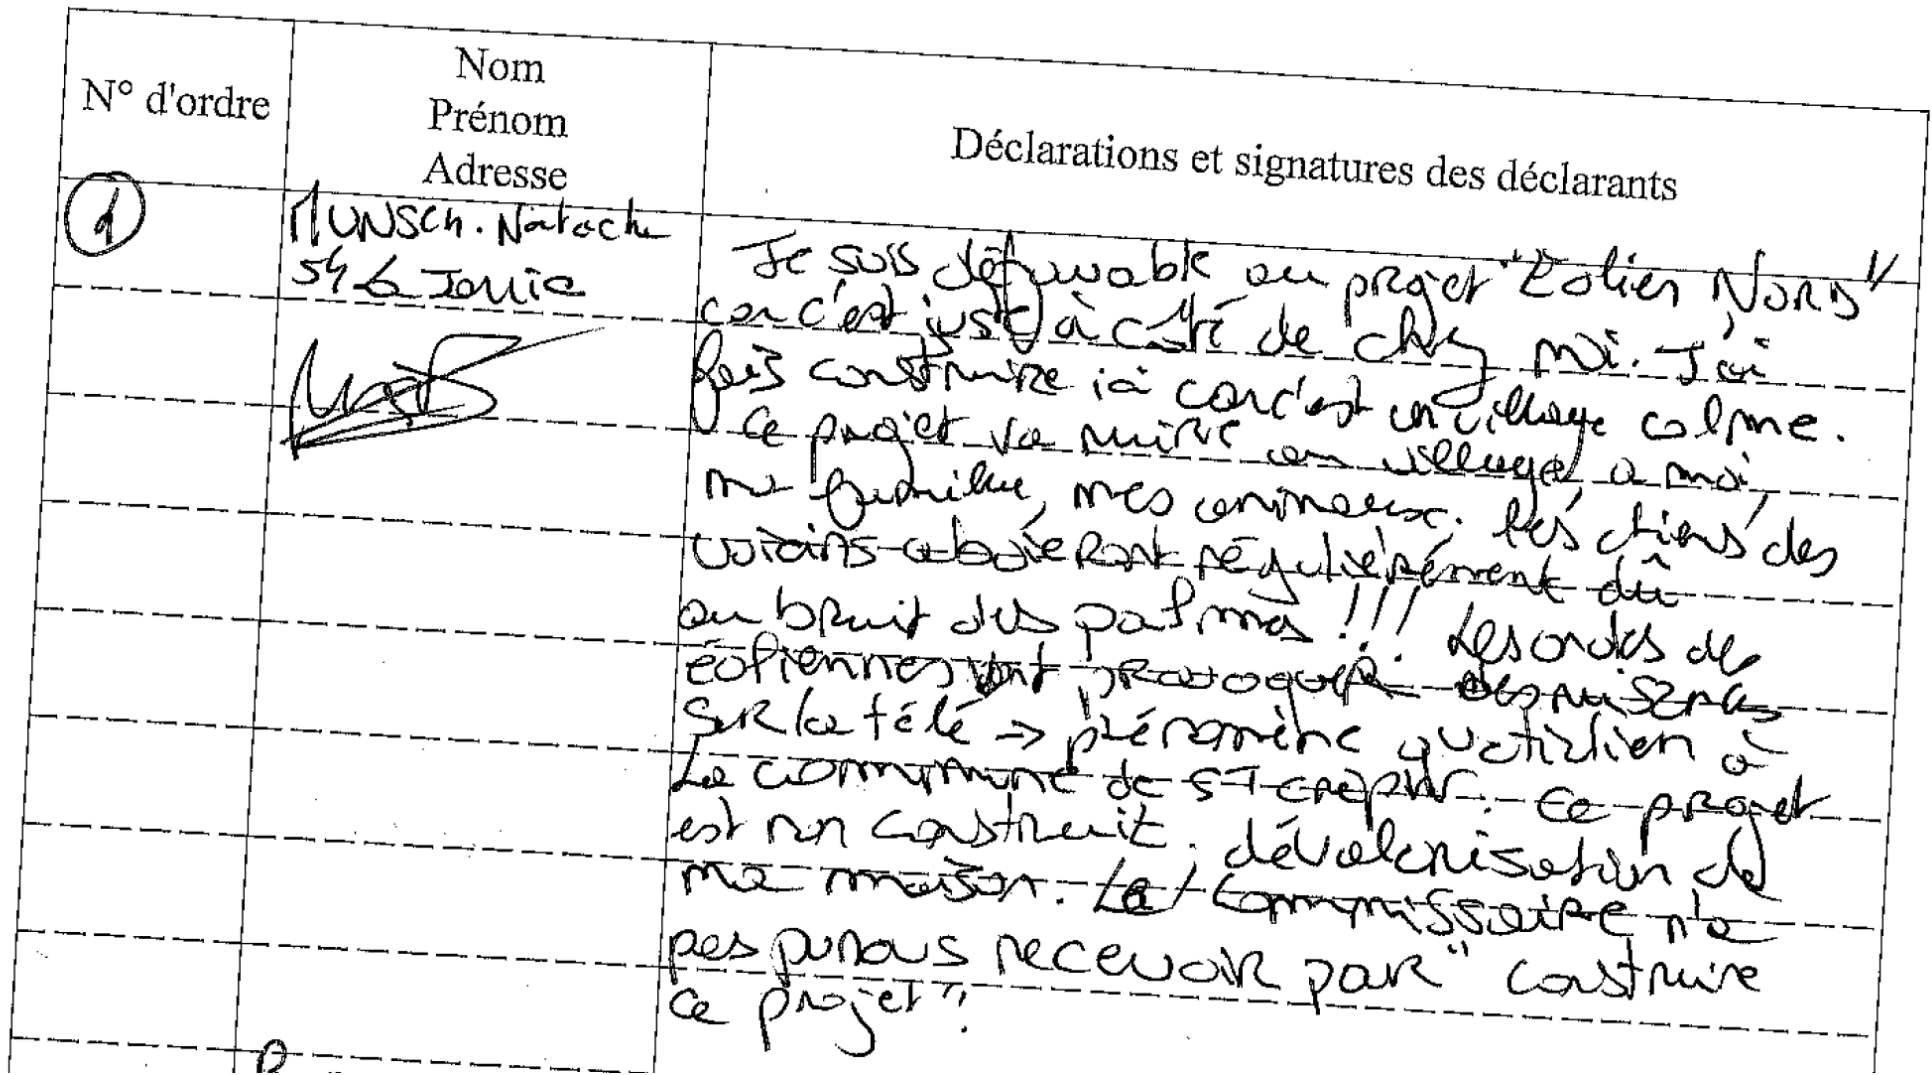 N° d'ordre
Nom
Prénom
Adresse
Déclarations et signatures des déclarants
1
MUNSCh. Natacha
54
Je suis défavorable au projet "Eolien NORD"
car c'est juste à côté de chez moi. J'ai
fais construire ici car c'est un village calme.
Ce projet va nuire au village, a moi,
ma famille, mes animaux. les chiens des
voisins aboieront réguliérement dû
au bruit des palmes !!! Les ondes des
éoliennes vont provoquer des
sur la télé → phénomène quotidien à
La commune de ST CREPIN. Ce projet
est non construit. dévalorisation de
ma maison. Le Commissaire n'a
pas pu nous recevoir pour " construire
ce projet".